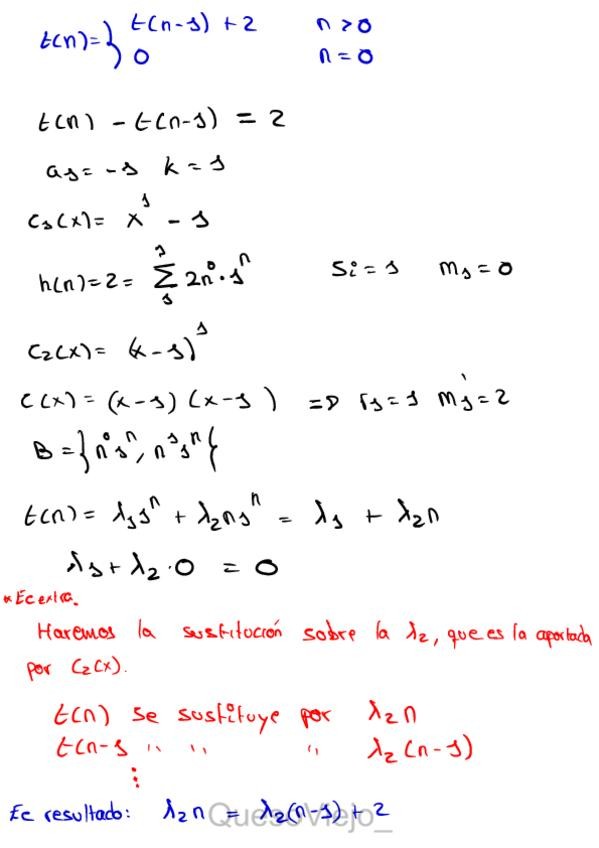 t(n)= { t(n-1) + 2 n>0
0 n=0
t(n) - t(n-1) = 2
a1= -1 k=1
C1(x)= x^1 - 1
h(n)=2= Σ_1^1 2n^0·1^n Si=1 m1=0
C2(x)= (x-1)^1
C(x)= (x-1)(x-1) => r1=1 m1'=2
B={n^0 1^n, n^1 1^n}
t(n)= λ1 1^n + λ2 n 1^n = λ1 + λ2 n
λ1 + λ2·0 = 0
* Ec extra.
Haremos la sustitución sobre la λ2, que es la aportada
por C2(x).
t(n) se sustituye por λ2 n
t(n-1 " " " λ2 (n-1)
⋮
Ec resultado: λ2 n = λ2(n-1) + 2
QuesoViejo_